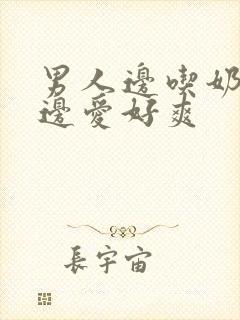 男人邊喫奶
邊愛好爽
長宇宙